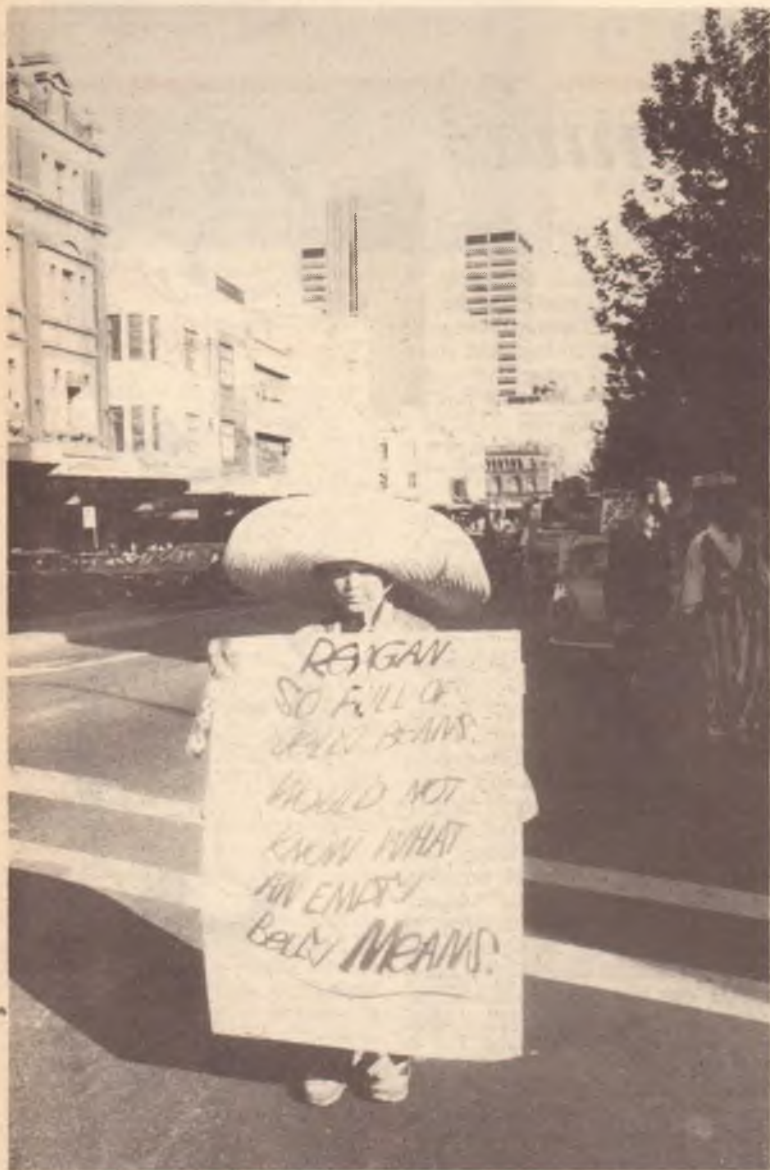 REAGAN
SO FULL OF
JELLY BEANS.
WOULD NOT
KNOW WHAT
AN EMPTY
BELLY MEANS.